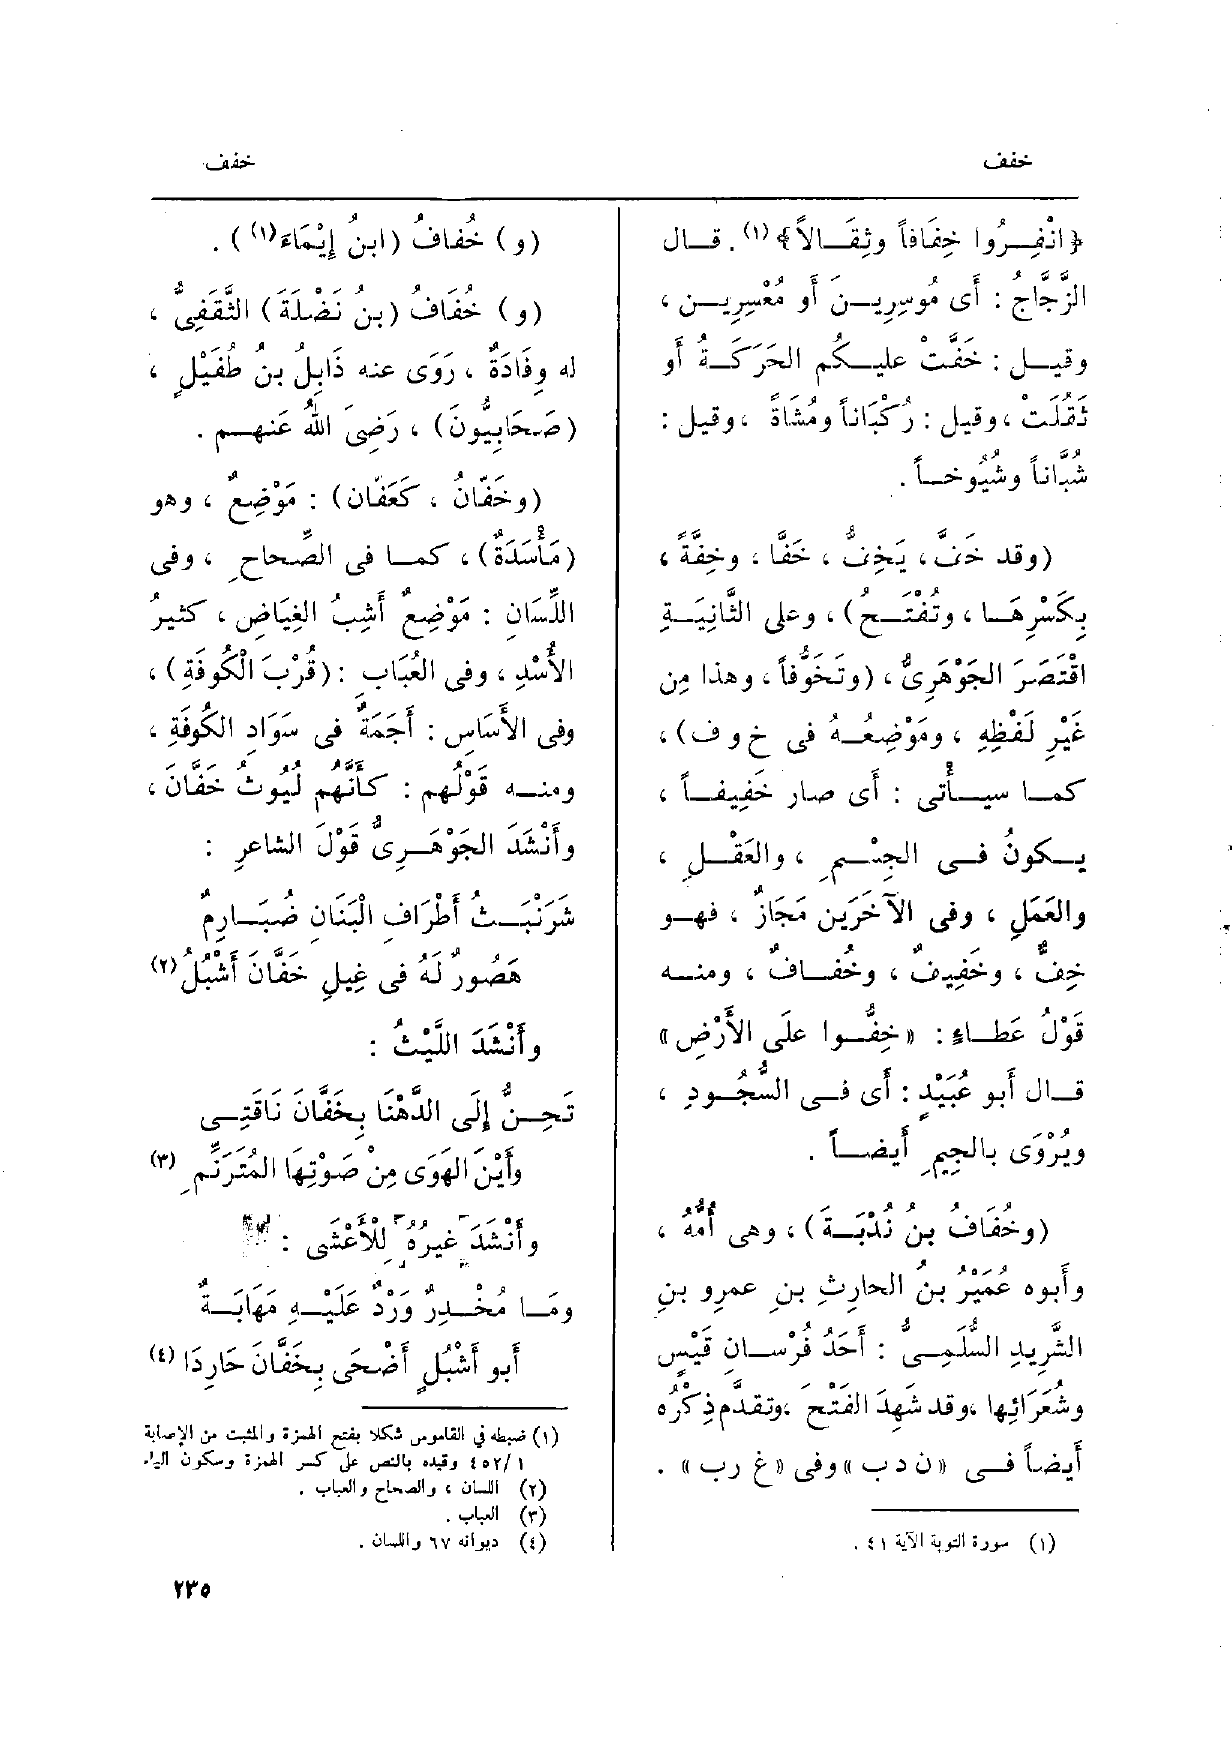 خفف
خفف
﴿انْفِـرُوا خِفَافاً وثِقَـالاً﴾(١). قـال
الزَّجَّاجُ : أَى مُوسِرِيـنَ أَو مُعْسِرِيـن ،
وقيـل : خَفَّت عليـكم الحَرَكَـةُ أَو
ثَقُلَتْ ، وقيل : رُكْبَاناً ومُشَاةً ، وقيل :
شُبَّاناً وشُيُوخـاً .
(وقد خَفَّ ، يَخِفُّ ، خَفًّا ، وخِفَّةً ،
بِكَسْرِهَـا ، وتُفْتَـحُ) ، وعلى الثَّانِيَـةِ
اقْتَصَرَ الجَوْهَرِىُّ ، (وتَخَوُّفاً ، وهذا مِن
غَيْرِ لَفْظِهِ ، ومَوْضِعُـهُ فى خ و ف) ،
كمـا سيـأْتى : أَى صار خَفِيفـاً ،
يـكونُ فـى الجِسْـمِ ، والعَقْـلِ ،
والعَمَلِ ، وفى الآخَرَين مَجَازٌ ، فهـو
خِفٌّ ، وخَفِيفٌ ، وخُفَـافٌ ، ومنـه
قَوْلُ عَطـاءٍ : «خِفُّـوا علَى الأَرْضِ»
قـال أَبو عُبَيْدٍ : أَى فـى السُّجُـودِ ،
ويُرْوَى بالجِيمِ أَيضـاً .
(وخُفَاف بنُ نُدْبَـةَ) ، وهى أُمُّهُ ،
وأَبوه عُمَيْرُ بنُ الحارِثِ بنِ عمرِو بنِ
الشَّرِيدِ السُّلَمِـىُّ : أَحَدُ فُرْسـانِ قَيْسٍ
وشُعَرَائِها ، وقد شَهِدَ الفَتْحَ ، وتقدَّم ذِكْرُه
أَيضـاً فـى «ن د ب» وفى «غ ر ب» .
(١) سورة التوبة الآية ٤١ .
(و) خُفافُ (ابنُ إِيْمَاءَ(١)) .
(و) خُفَافُ (بنُ نَضْلَةَ) الثَّقَفِىُّ ،
له وِفَادَةٌ ، رَوَى عنه ذَابِلُ بنُ طُفَيْلٍ ،
(صَحَابِيُّونَ) ، رَضِىَ اللهُ عَنهـم .
(وخَفَّانُ ، كَعَفَّان) : مَوْضِعٌ ، وهو
(مَأْسَدَةٌ) ، كمـا فى الصِّحاحِ ، وفى
اللِّسَانِ : مَوْضِعٌ أَشِبُ الغِيَاضِ ، كثيرُ
الأُسْدِ ، وفى العُبَابِ : (قُرْبَ الْكُوفَةِ) ،
وفى الأَسَاسِ : أَجَمَةٌ فى سَوَادِ الكُوفَةِ ،
ومنـه قَوْلُهم : كأَنَّهُم لُيُوثُ خَفَّانَ ،
وأَنْشَدَ الجَوْهَـرِىُّ قَوْلَ الشاعرِ :
شَرَنْبَـثُ أَطْرَافِ الْبَنَانِ ضُبَـارِمٌ
هَصُورٌ لَهُ فى غِيلِ خَفَّانَ أَشْبُلُ(٢)
وأَنْشَدَ اللَّيْثُ :
تَحِـنُّ إِلَى الدَّهْنَا بِخَفَّانَ نَاقَتِـى
وأَيْنَ الهَوَى مِنْ صَوْتِهَا المُتَرَنِّمِ(٣)
وأَنْشَدَ غيرُهُ لِلْأَعْشَى :
ومَـا مُخْـدِرٌ وَرْدٌ عَلَيْـهِ مَهَابَـةٌ
أَبو أَشْبُلٍ أَضْحَى بِخَفَّانَ حَارِدَا(٤)
(١) ضبطه في القاموس شكلا بفتح الهمزة والمثبت من الإصابة
٤٥٢/١ وقيده بالنص على كسر الهمزة وسكون الياء.
(٢) اللسان ، والصحاح والعباب .
(٣) العباب .
(٤) ديوانه ٦٧ واللسان .
٢٣٥